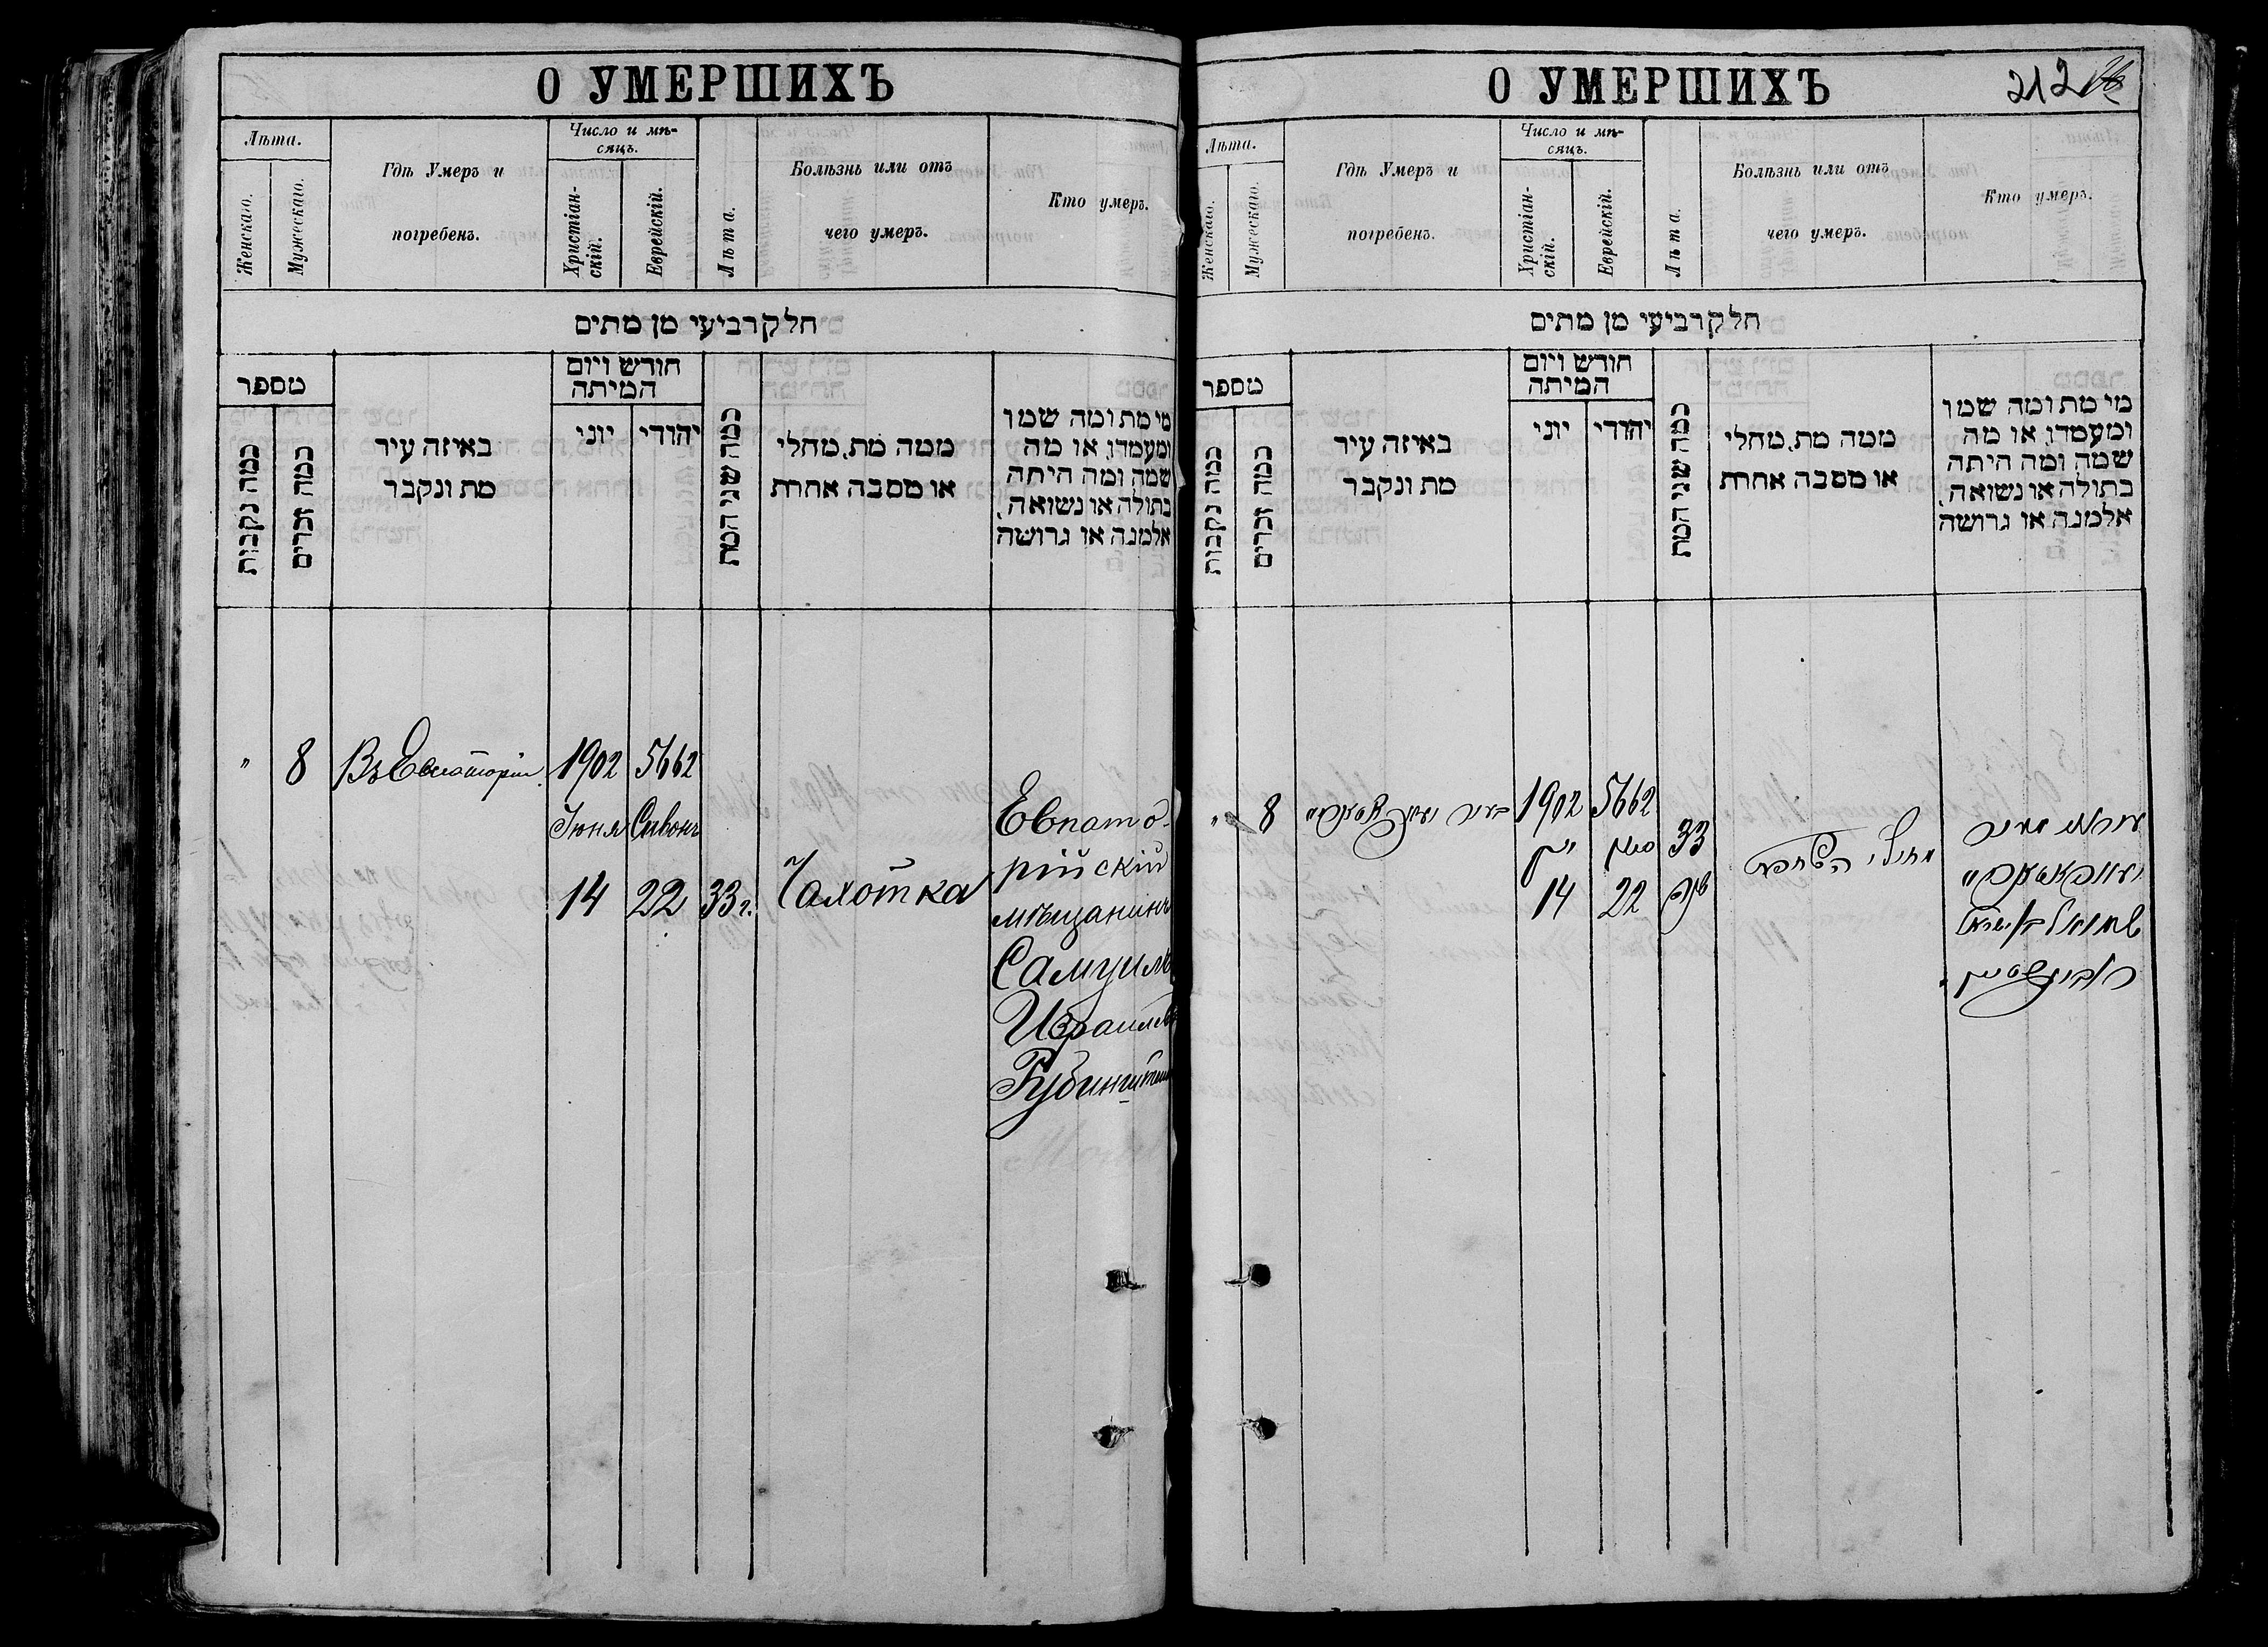 О УМЕРШИХЪ
Лѣта.
Женскаго.
Мужескаго.
Гдѣ Умеръ и
погребенъ.
Число и мѣ-
сяцъ.
Христіан-
скій.
Еврейскій.
Лѣта.
Болѣзнь или отъ
чего умеръ.
Кто умеръ.
חלק רביעי מן מתים
מספר
כמה נקבות
כמה זכרים
באיזה עיר
מת ונקבר
חודש ויום
המיתה
יוני
יהודי
כמה שני המת
ממה מת, מחלי
או מסבה אחרת
מי מת ומה שמו
ומעמדו, או מה
שמה ומה היתה
בתולה או נשואה,
אלמנה או גרושה
"
8
Въ Евпаторіи
1902
Іюня
14
5662
Сивонъ
22
33 г.
Чахотка
Евпато-
рійскій
мѣщанинъ
Самуилъ
Израилев
Рубинштейн
О УМЕРШИХЪ
212
Лѣта.
Женскаго.
Мужескаго.
Гдѣ Умеръ и
погребенъ.
Число и мѣ-
сяцъ.
Христіан-
скій.
Еврейскій.
Лѣта.
Болѣзнь или отъ
чего умеръ.
Кто умеръ.
חלק רביעי מן מתים
מספר
כמה נקבות
כמה זכרים
באיזה עיר
מת ונקבר
חודש ויום
המיתה
יוני
יהודי
כמה שני המת
ממה מת, מחלי
או מסבה אחרת
מי מת ומה שמו
ומעמדו, או מה
שמה ומה היתה
בתולה או נשואה,
אלמנה או גרושה
"
8
1902
14
5662
סיון
22
33
שנה
שמואל